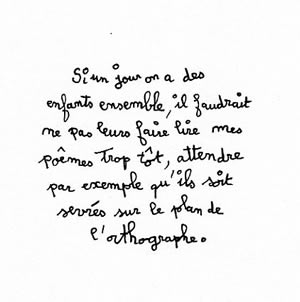 Si un jour on a des
enfants ensemble, il faudrait
ne pas leurs faire lire mes
poêmes trop tôt, attendre
par exemple qu'ils soit
sevrés sur le plan de
l'orthographe.